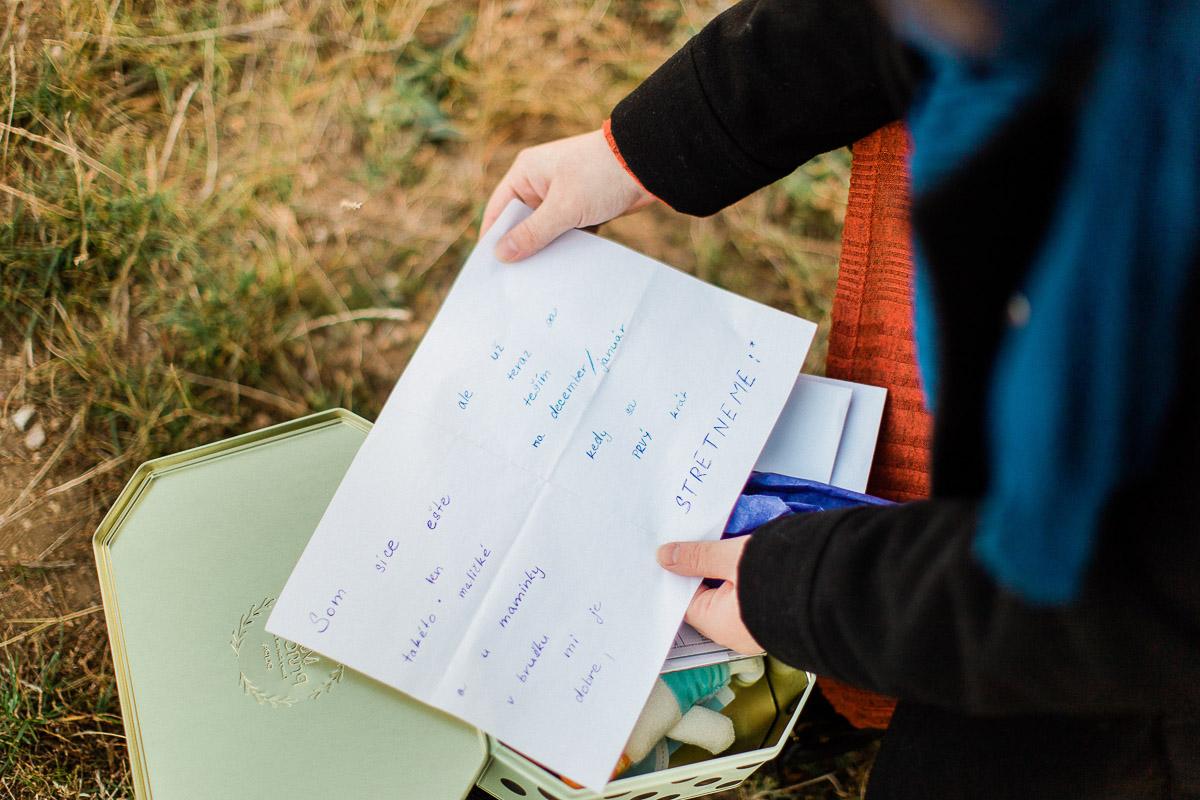 Som síce ešte
takéto • len
maličké
a u maminky
v brušku mi je
dobre!
ale už
teraz sa
teším
na december/január
kedy sa
PRVÝ krát
STRETNEME!*